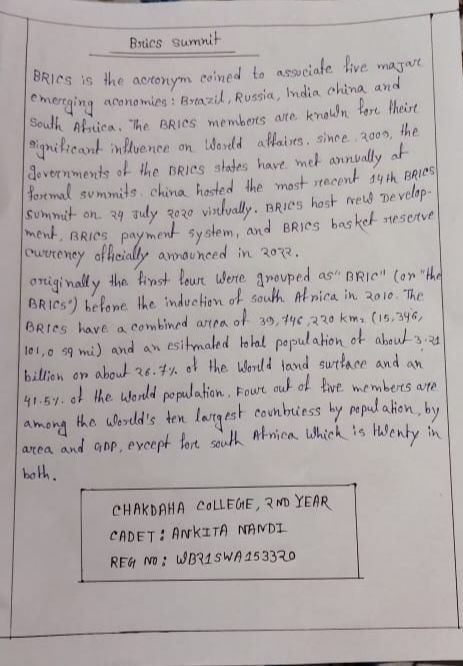 Brics sumnit
BRICS is the acronym coined to associate five major
emerging aconomies: Brazil, Russia, India china and
South Africa. The BRICS members are known fore theire
significant influence on World affaires. since 2009, the
governments of the BRICS states have met annually at
formal summits. china hosted the most recent 14th BRICS
summit on 24 July 2020 virtually. BRICS host new Develop-
ment, BRICS payment system, and BRICS basket reserve
currency officially announced in 2022.
originally the first four were grouped as "BRIC" (or "the
BRICS") before the induction of south Africa in 2010. The
BRICS have a combined area of 39,746,220 km2 (15,346,
101,0 sq mi) and an esitmated total population of about 3.21
billion or about 26.7% of the World land surface and an
41.5% of the World population. Four out of five members are
among the World's ten largest countriess by population, by
area and GDP, except fore south Africa which is twenty in
both.
CHAKDAHA COLLEGE, 2ND YEAR
CADET: ANKITA NANDI
REG NO: WB21SWA153320